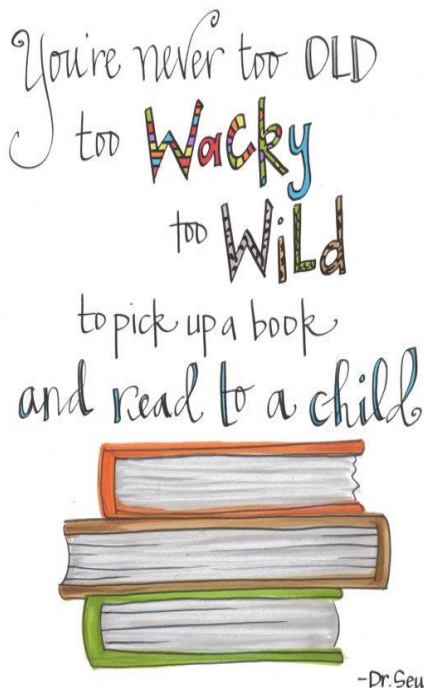 You're never too OLD
too WaCky
too WiLd
to pick up a book
and read to a child
-Dr.Seu